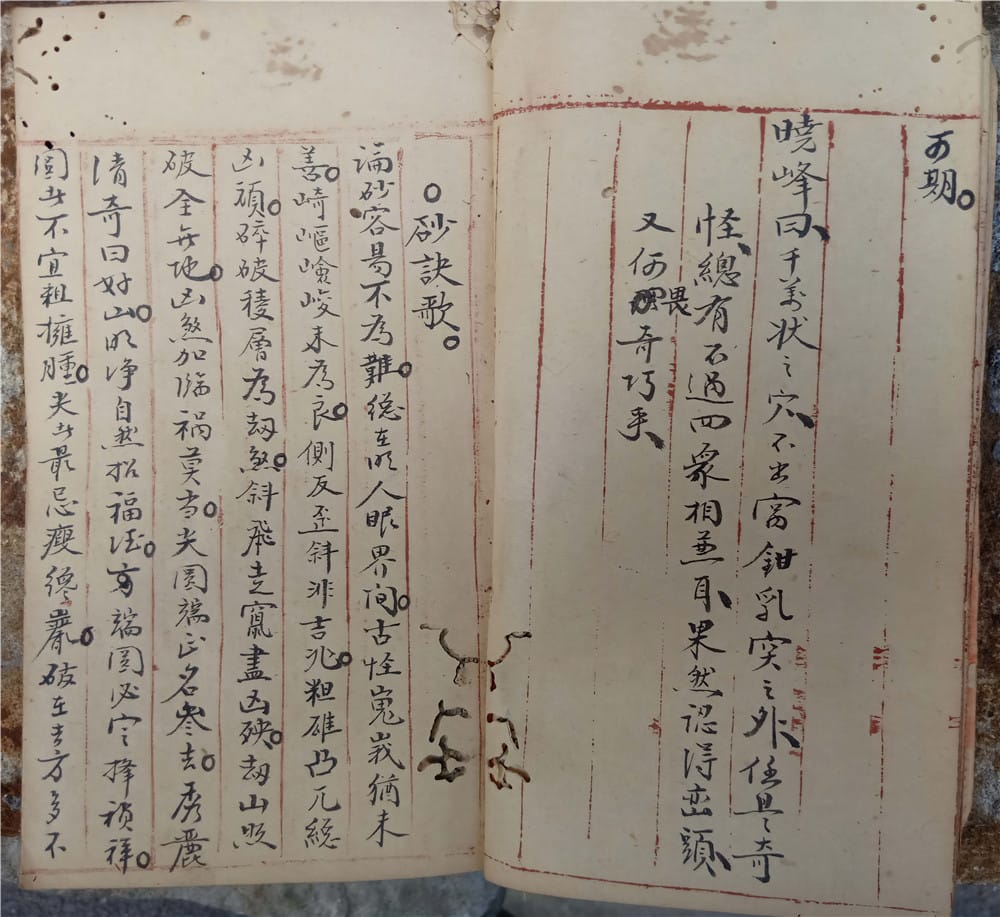 可期。
曉峰曰千萬狀之穴不出窩鉗乳突之外任是奇
怪總有不過四象相兼耳果然認得巒頭
又何畏奇巧乎
○砂訣歌。
論砂容易不為難。總在明人眼界間。古怪嵬峩猶未
善。崎嶇嶮峻未為良。側反歪斜非吉兆。粗雄凸兀總
凶頑。碎破稜層為劫煞。斜飛走竄盡凶殃。劫山照
破全無地。凶煞加臨禍莫當。尖圓端正名叁吉。秀麗
清奇曰好山。明净自然招福德。方端圓必定擇禎祥。
圓者不宜粗擁腫。尖者最忌瘦巉巖。破在吉方多不